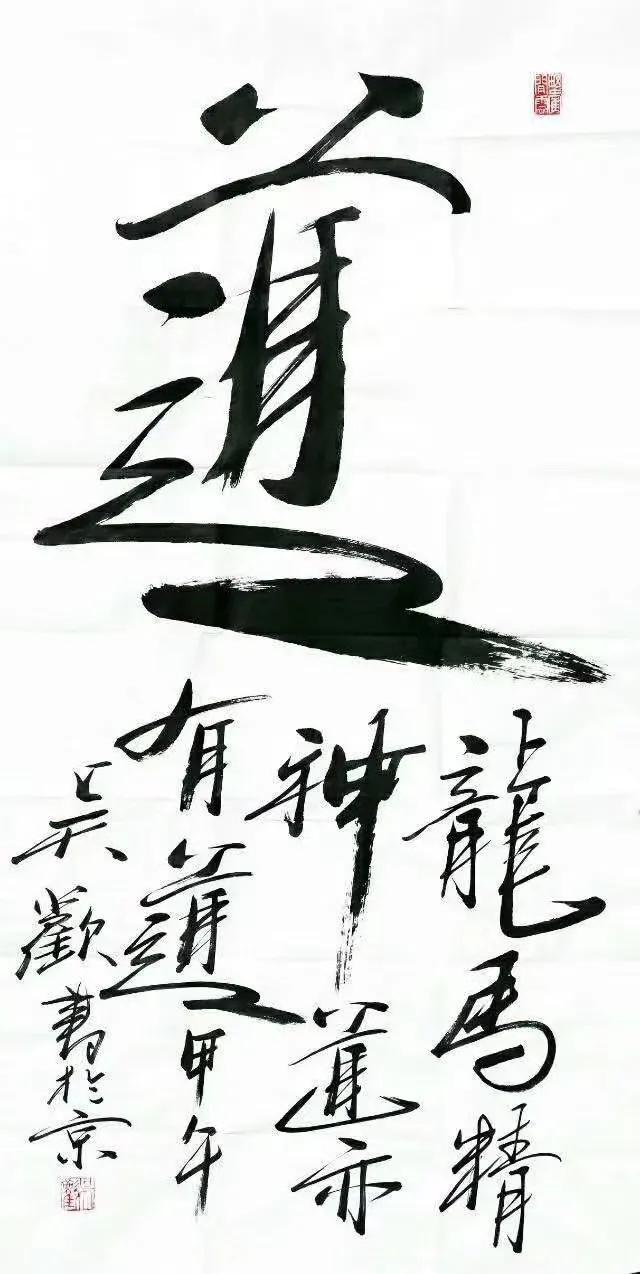 道
龍馬精
神亦
有道甲午
吴歡書於京